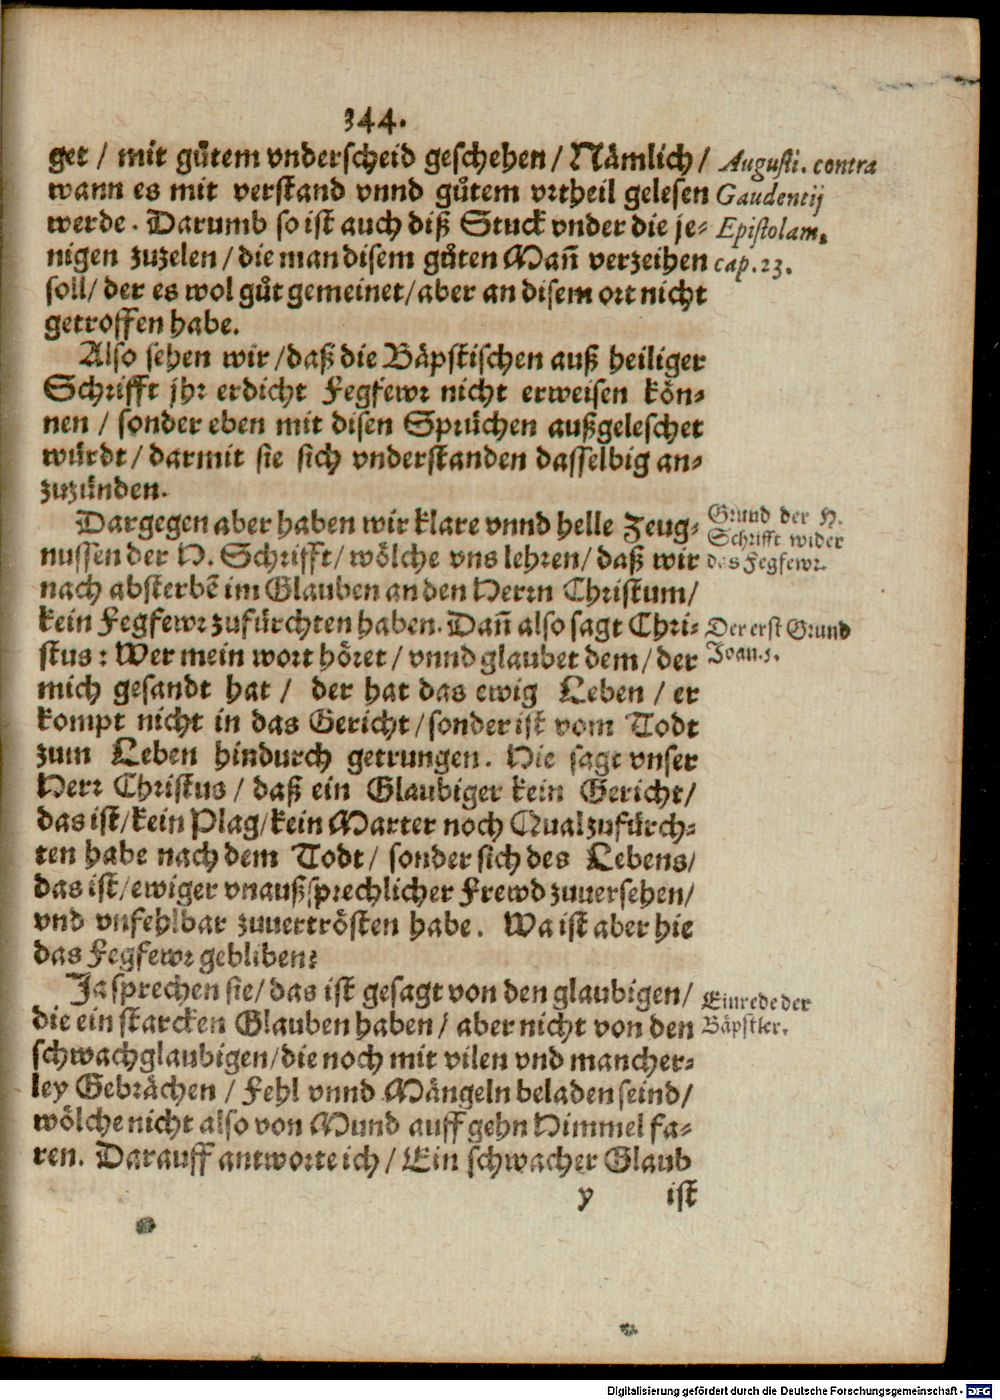 344.
get / mit gůtem vnderscheid geschehen / Nämlich /
wann es mit verstand vnnd gůtem vrtheil gelesen
werde. Darumb so ist auch diß Stuck vnder die je-
nigen zuzelen / die man disem gůten Mañ verzeihen
soll / der es wol gůt gemeinet / aber an disem ort nicht
getroffen habe.
Augusti. contra
Gaudentij
Epistolam,
cap. 23.
Also sehen wir / daß die Bäpstischen auß heiliger
Schrifft jhr erdicht Fegfewr nicht erweisen kön-
nen / sonder eben mit disen Sprüchen außgeleschet
würdt / darmit sie sich vnderstanden dasselbig an-
zuzünden.
Dargegen aber haben wir klare vnnd helle Zeug-
nussen der H. Schrifft / wölche vns lehren / daß wir
nach absterbē im Glauben an den Herrn Christum /
kein Fegfewr zufürchten haben. Dañ also sagt Chri-
stus: Wer mein wort höret / vnnd glaubet dem / der
mich gesandt hat / der hat das ewig Leben / er
kompt nicht in das Gericht / sonder ist vom Todt
zum Leben hindurch getrungen. Hie sagt vnser
Herr Christus / daß ein Glaubiger kein Gericht /
das ist / kein Plag / kein Marter noch Qual zufürch-
ten habe nach dem Todt / sonder sich des Lebens /
das ist / ewiger vnaußsprechlicher Frewd zuuersehen /
vnd vnfehlbar zuuertrösten habe. Wa ist aber hie
das Fegfewr gebliben?
Grund der H.
Schrifft wider
das Fegfewr.
Der erst Grund
Joan. 5.
Ja sprechen sie / das ist gesagt von den glaubigen /
die ein starcken Glauben haben / aber nicht von den
schwachglaubigen / die noch mit vilen vnd mancher-
ley Gebrächen / Fehl vnnd Mängeln beladen seind /
wölche nicht also von Mund auff gehn Himmel fa-
ren. Darauff antworte ich / Ein schwacher Glaub
Einrede der
Bäpstler.
y ist
Digitalisierung gefördert durch die Deutsche Forschungsgemeinschaft - DFG